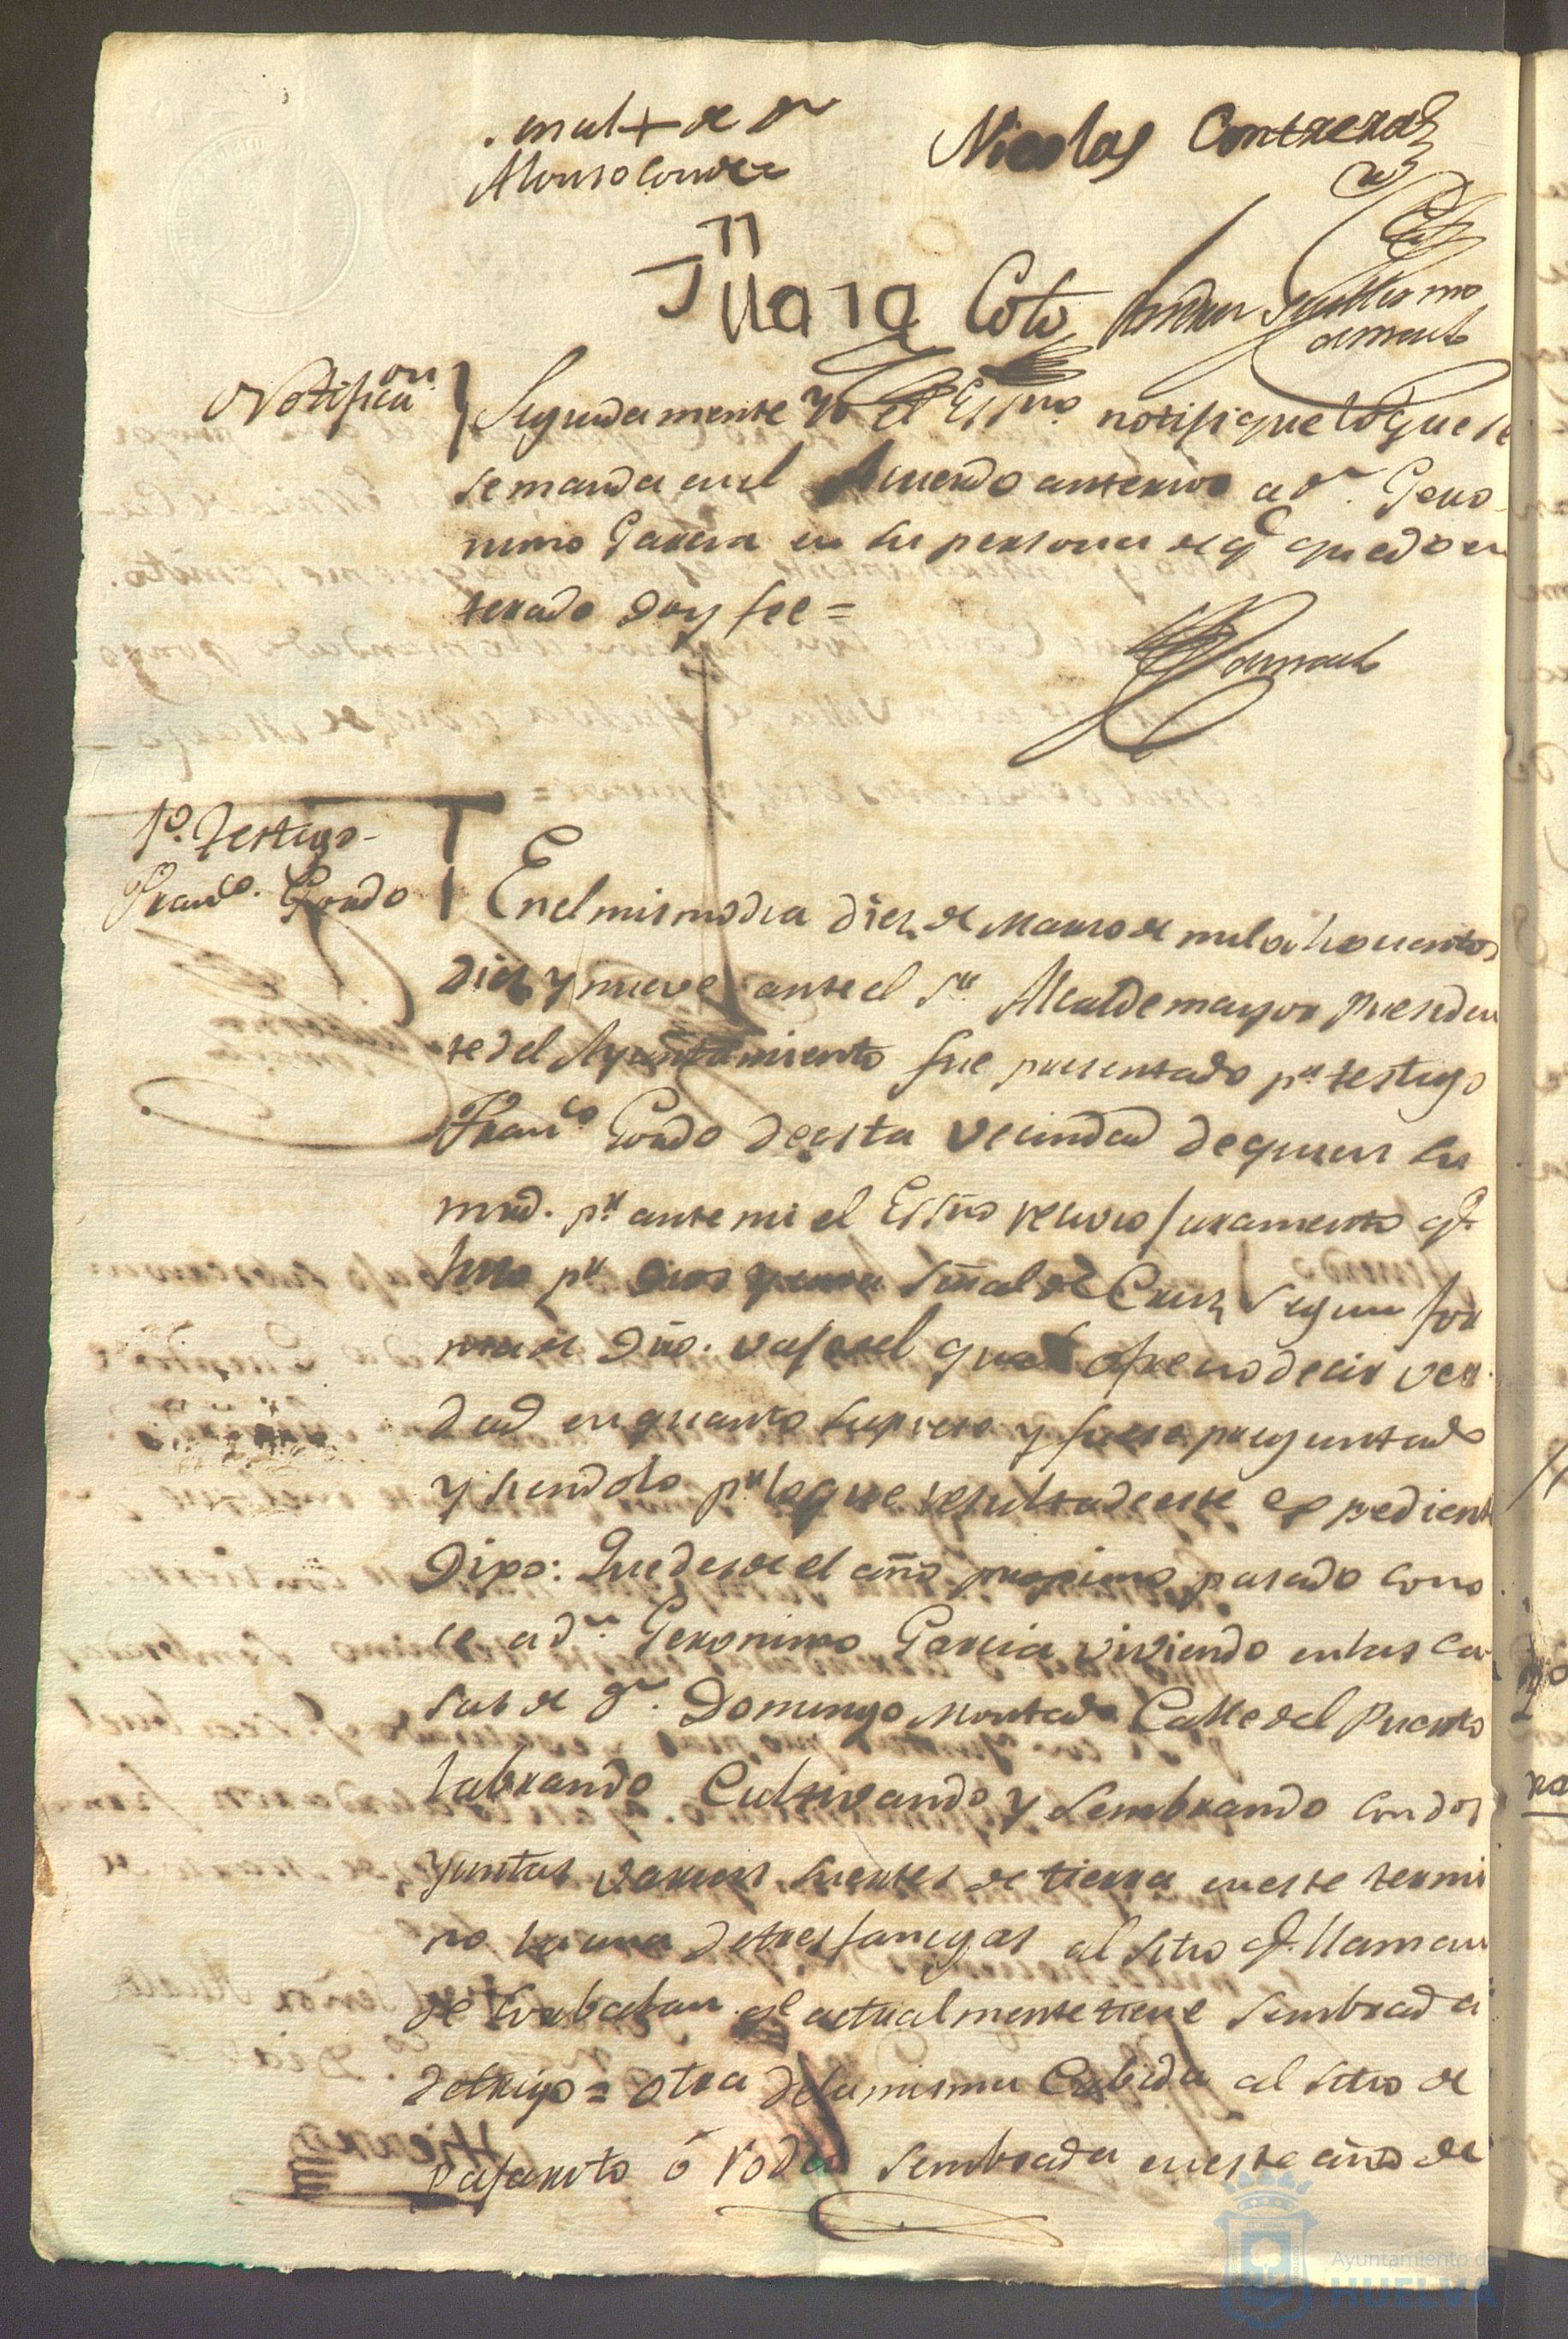 Señal + de Dn
Alonso Conde
Nicolas Contreras
Jn Mora Coto
Guillermo
Notificaon
Seguidamente yo el Essno. notifique lo que se
se manda en el Acuerdo anterior a dn. Gero-
nimo Garcia en su persona de qe quedo en
terado doy fee =
1o. Testigo
Franco. Gordo
En el mismo dia diez de Marzo de mil ochocientos
diez y nueve ante el Sr. Alcalde mayor presiden
te del Ayuntamiento fue presentado pr testigo
Franco Gordo de esta vecindad de quien su
mrd. pr ante mi el Essno recivio juramento qe
hizo pr Dios y una señal de Cruz segun for
ma de Dro. vajo el qual ofrecio decir ver
dad en quanto supiere y fuere preguntado
y siendolo pr lo que resulta de este expediente
Dixo: Que desde el año proximo pasado cono
ce a dn. Geronimo Garcia viviendo en las ca
sas de dn. Domingo Montado Calle del Puerto
labrando Cultivando y Sembrando con dos
yuntas varias suertes de tierra en este termi
no la una de tres fanegas al sitio qe llaman
de qe actualmente tiene sembrada
de trigo = otra de la misma Cabida al sitio de
Pajarito ó Rodeo sembrada en este año de
Ayuntamiento de
HUELVA